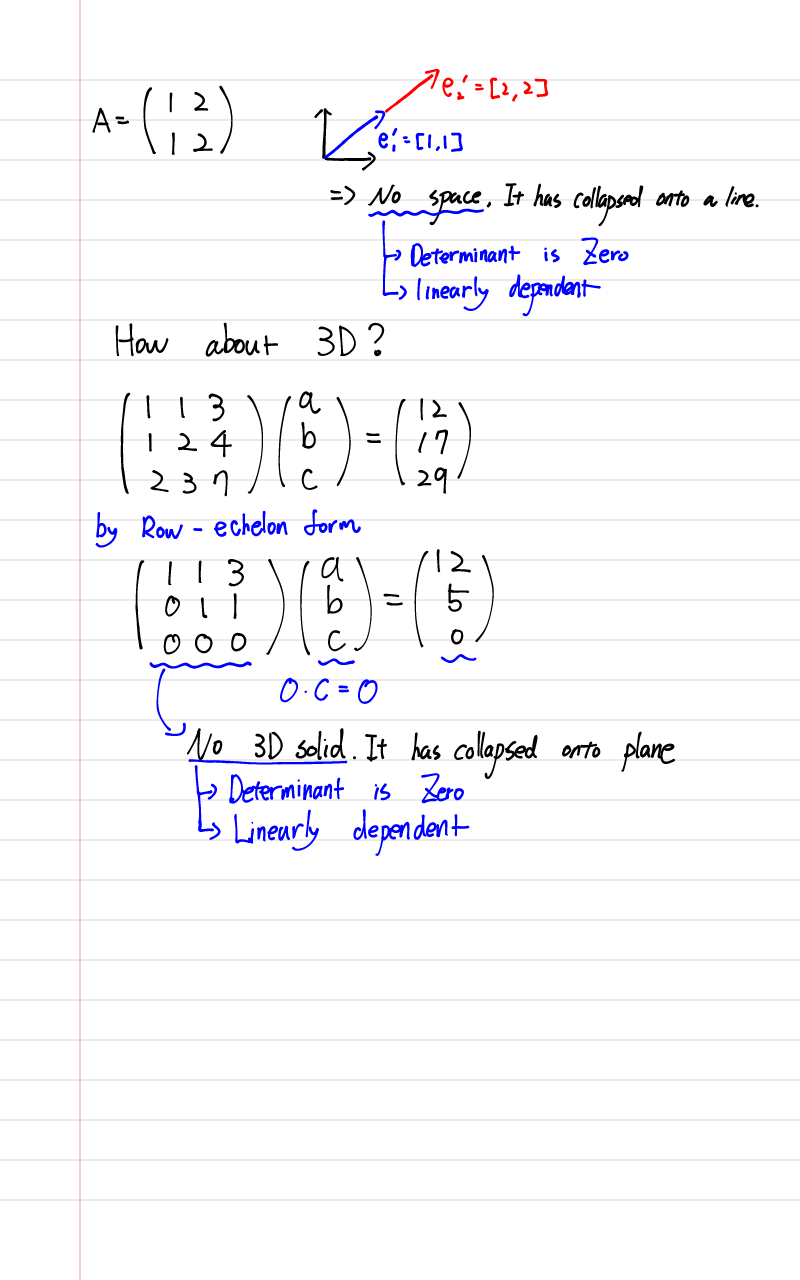 A = ( 1 2
1 2 )
e₂' = [2, 2]
e₁' = [1, 1]
=> No space. It has collapsed onto a line.
↳ Determinant is Zero
↳ linearly dependent
How about 3D?
( 1 1 3 ) ( a ) = ( 12 )
( 1 2 4 ) ( b ) ( 17 )
( 2 3 7 ) ( c ) ( 29 )
by Row - echelon form
( 1 1 3 ) ( a ) = ( 12 )
( 0 1 1 ) ( b ) ( 5 )
( 0 0 0 ) ( c ) ( 0 )
0 · C = 0
No 3D solid. It has collapsed onto plane
↳ Determinant is Zero
↳ Linearly dependent